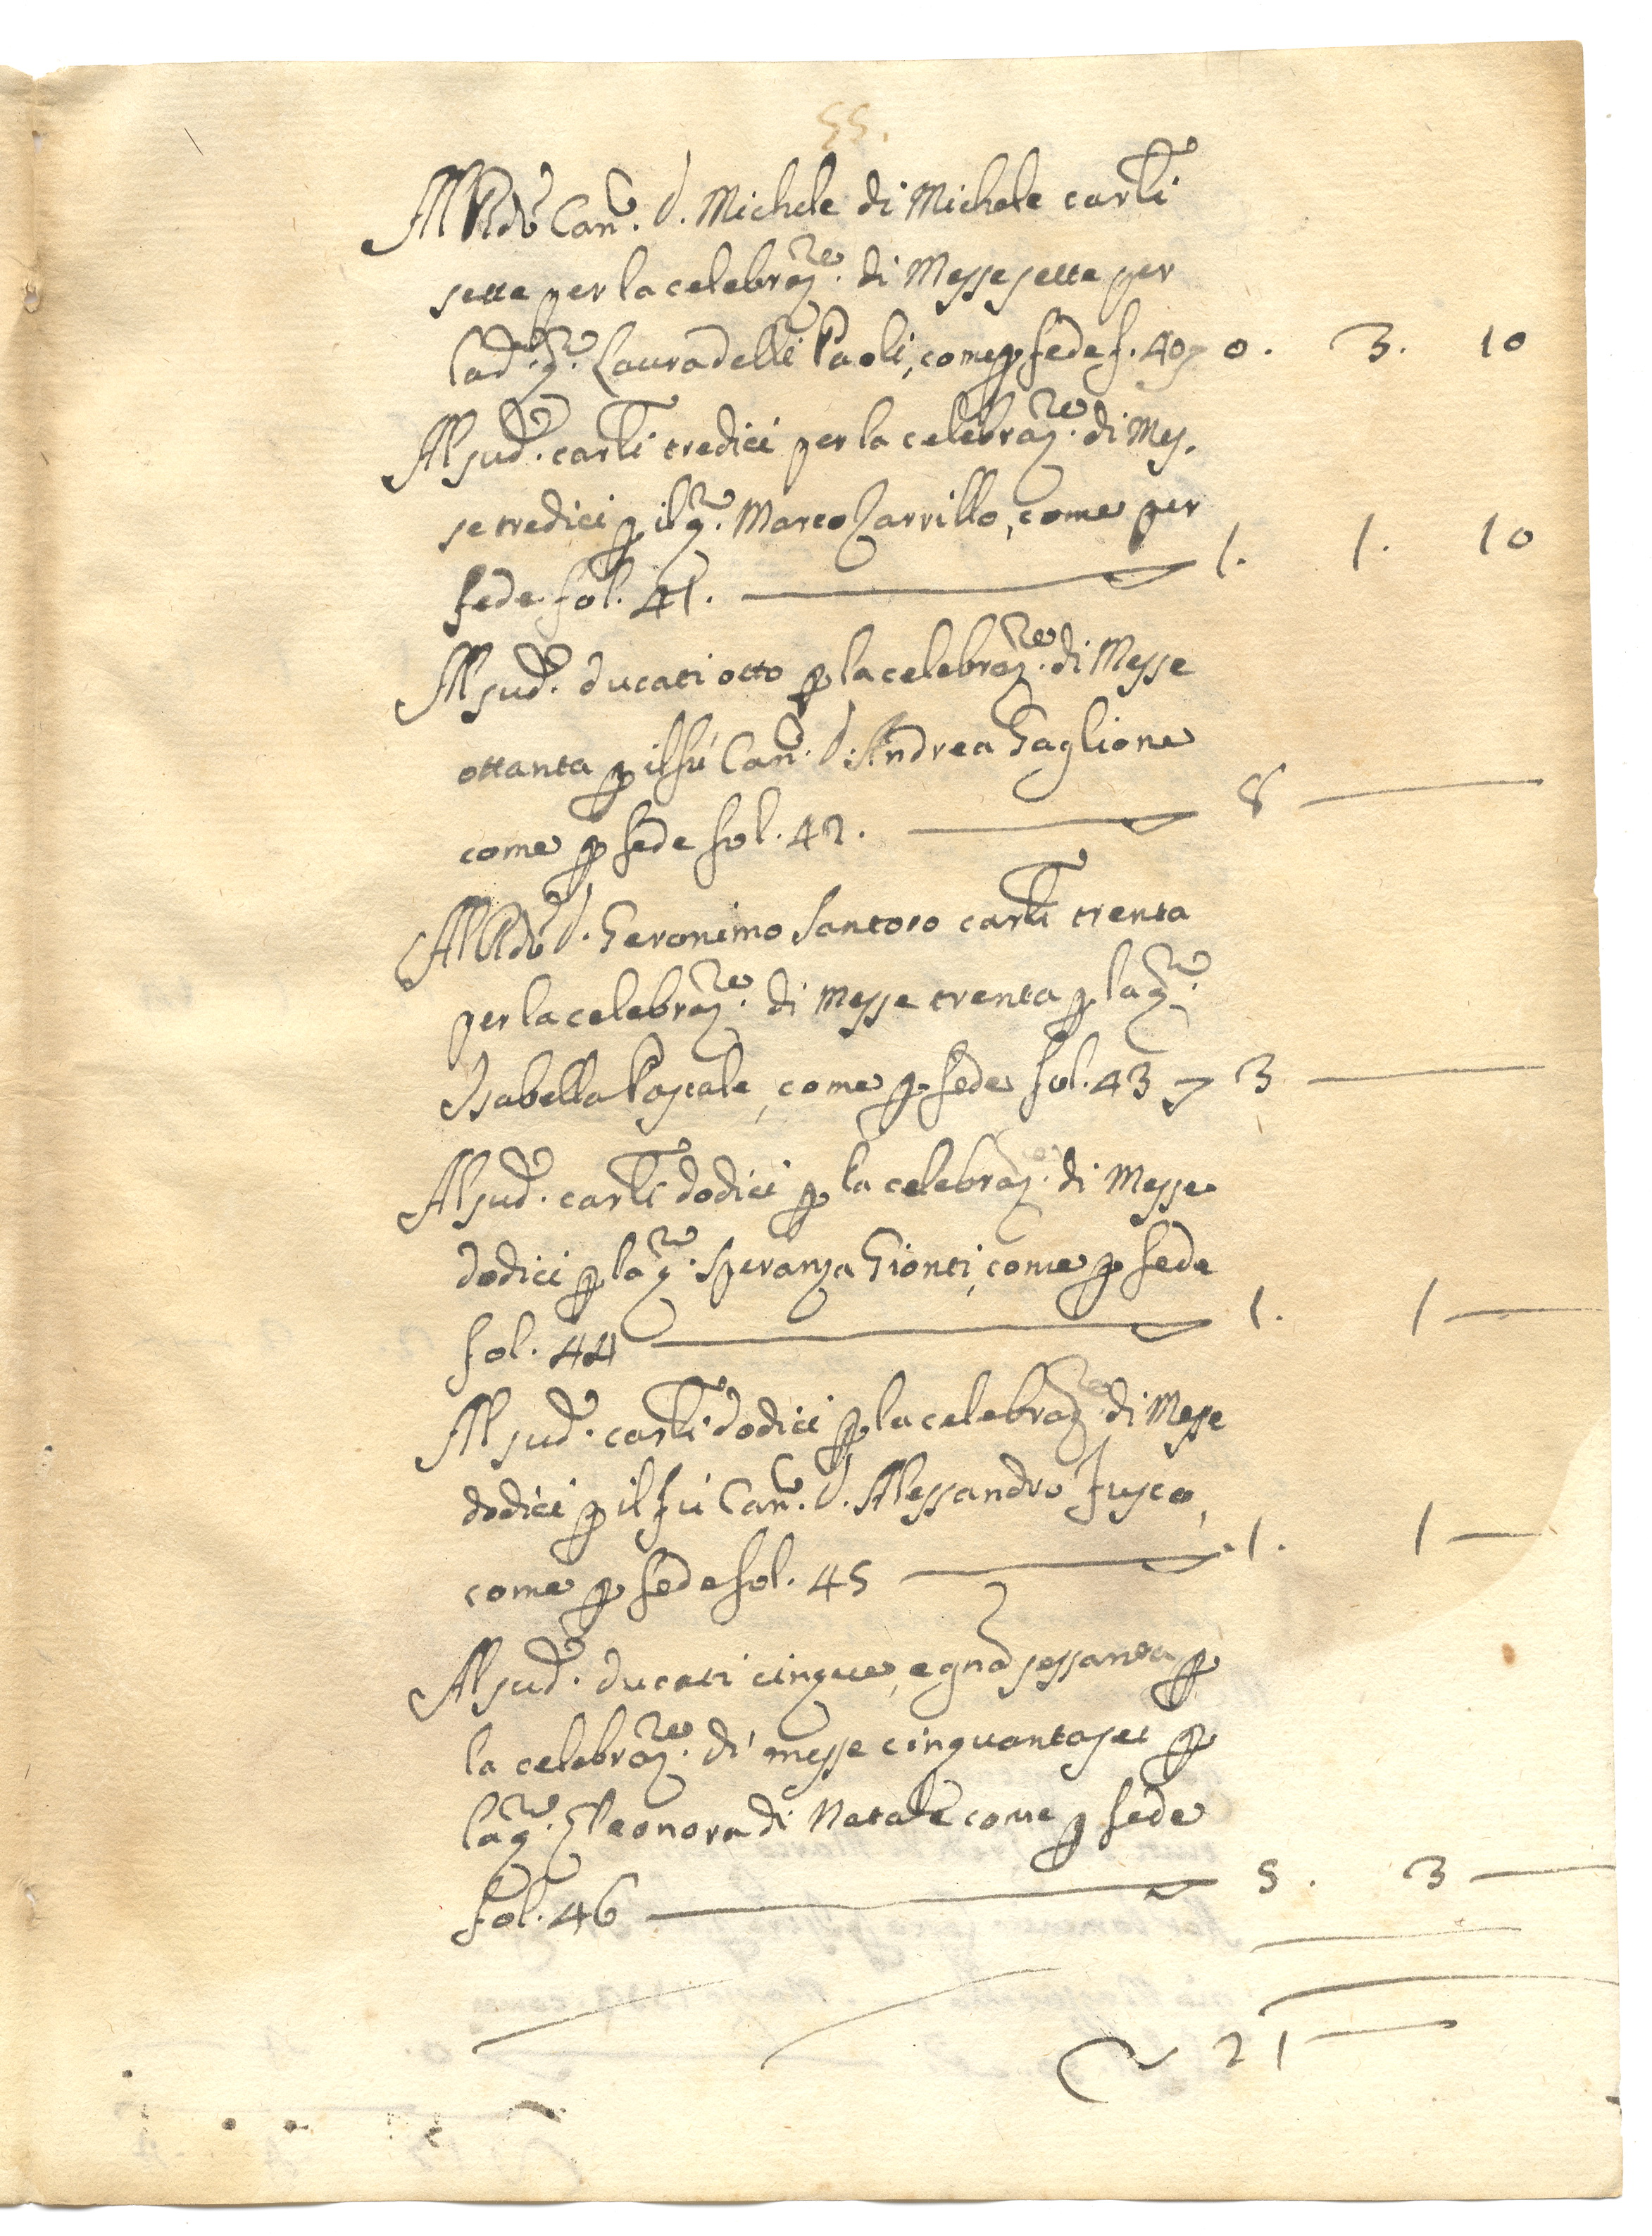 55.
Al R.do Can.co D. Michele di Michele carli
sette per la celebraz.ne di Messe sette per
la d.a q.m Laura delli Paoli, come p fede f. 40 0. 3. 10
Al sud.o carli tredici per la celebraz.ne di Mes,
se tredici p il q.m Marco Zarrillo, come per
fede fol. 41. 1. 1. 10
Al sud.o ducati otto p la celebraz.ne di Messe
ottanta p il fù Can.co D. Andrea Gaglione
come p fede fol. 42. 8
Al R.do D. Geronimo Santoro carli trenta
per la celebraz.ne di Messe trenta p la q.m
Isabella Pascale, come p fede fol. 43 3
Al sud.o carli dodici p la celebraz.ne di Messe
dodici p la q.m Speranza Gionti, come p fede
fol. 44 1. 1
Al sud.o carli dodici p la celebraz.ne di Messe
dodici p il fù Can.co D. Alessandro Fusco,
come p fede fol. 45 1. 1
Al sud.o ducati cinque, e gna sessanta p
la celebraz.ne di messe cinquantasei p
la q.m Eleonora di Natale come p fede
fol. 46 5. 3
21